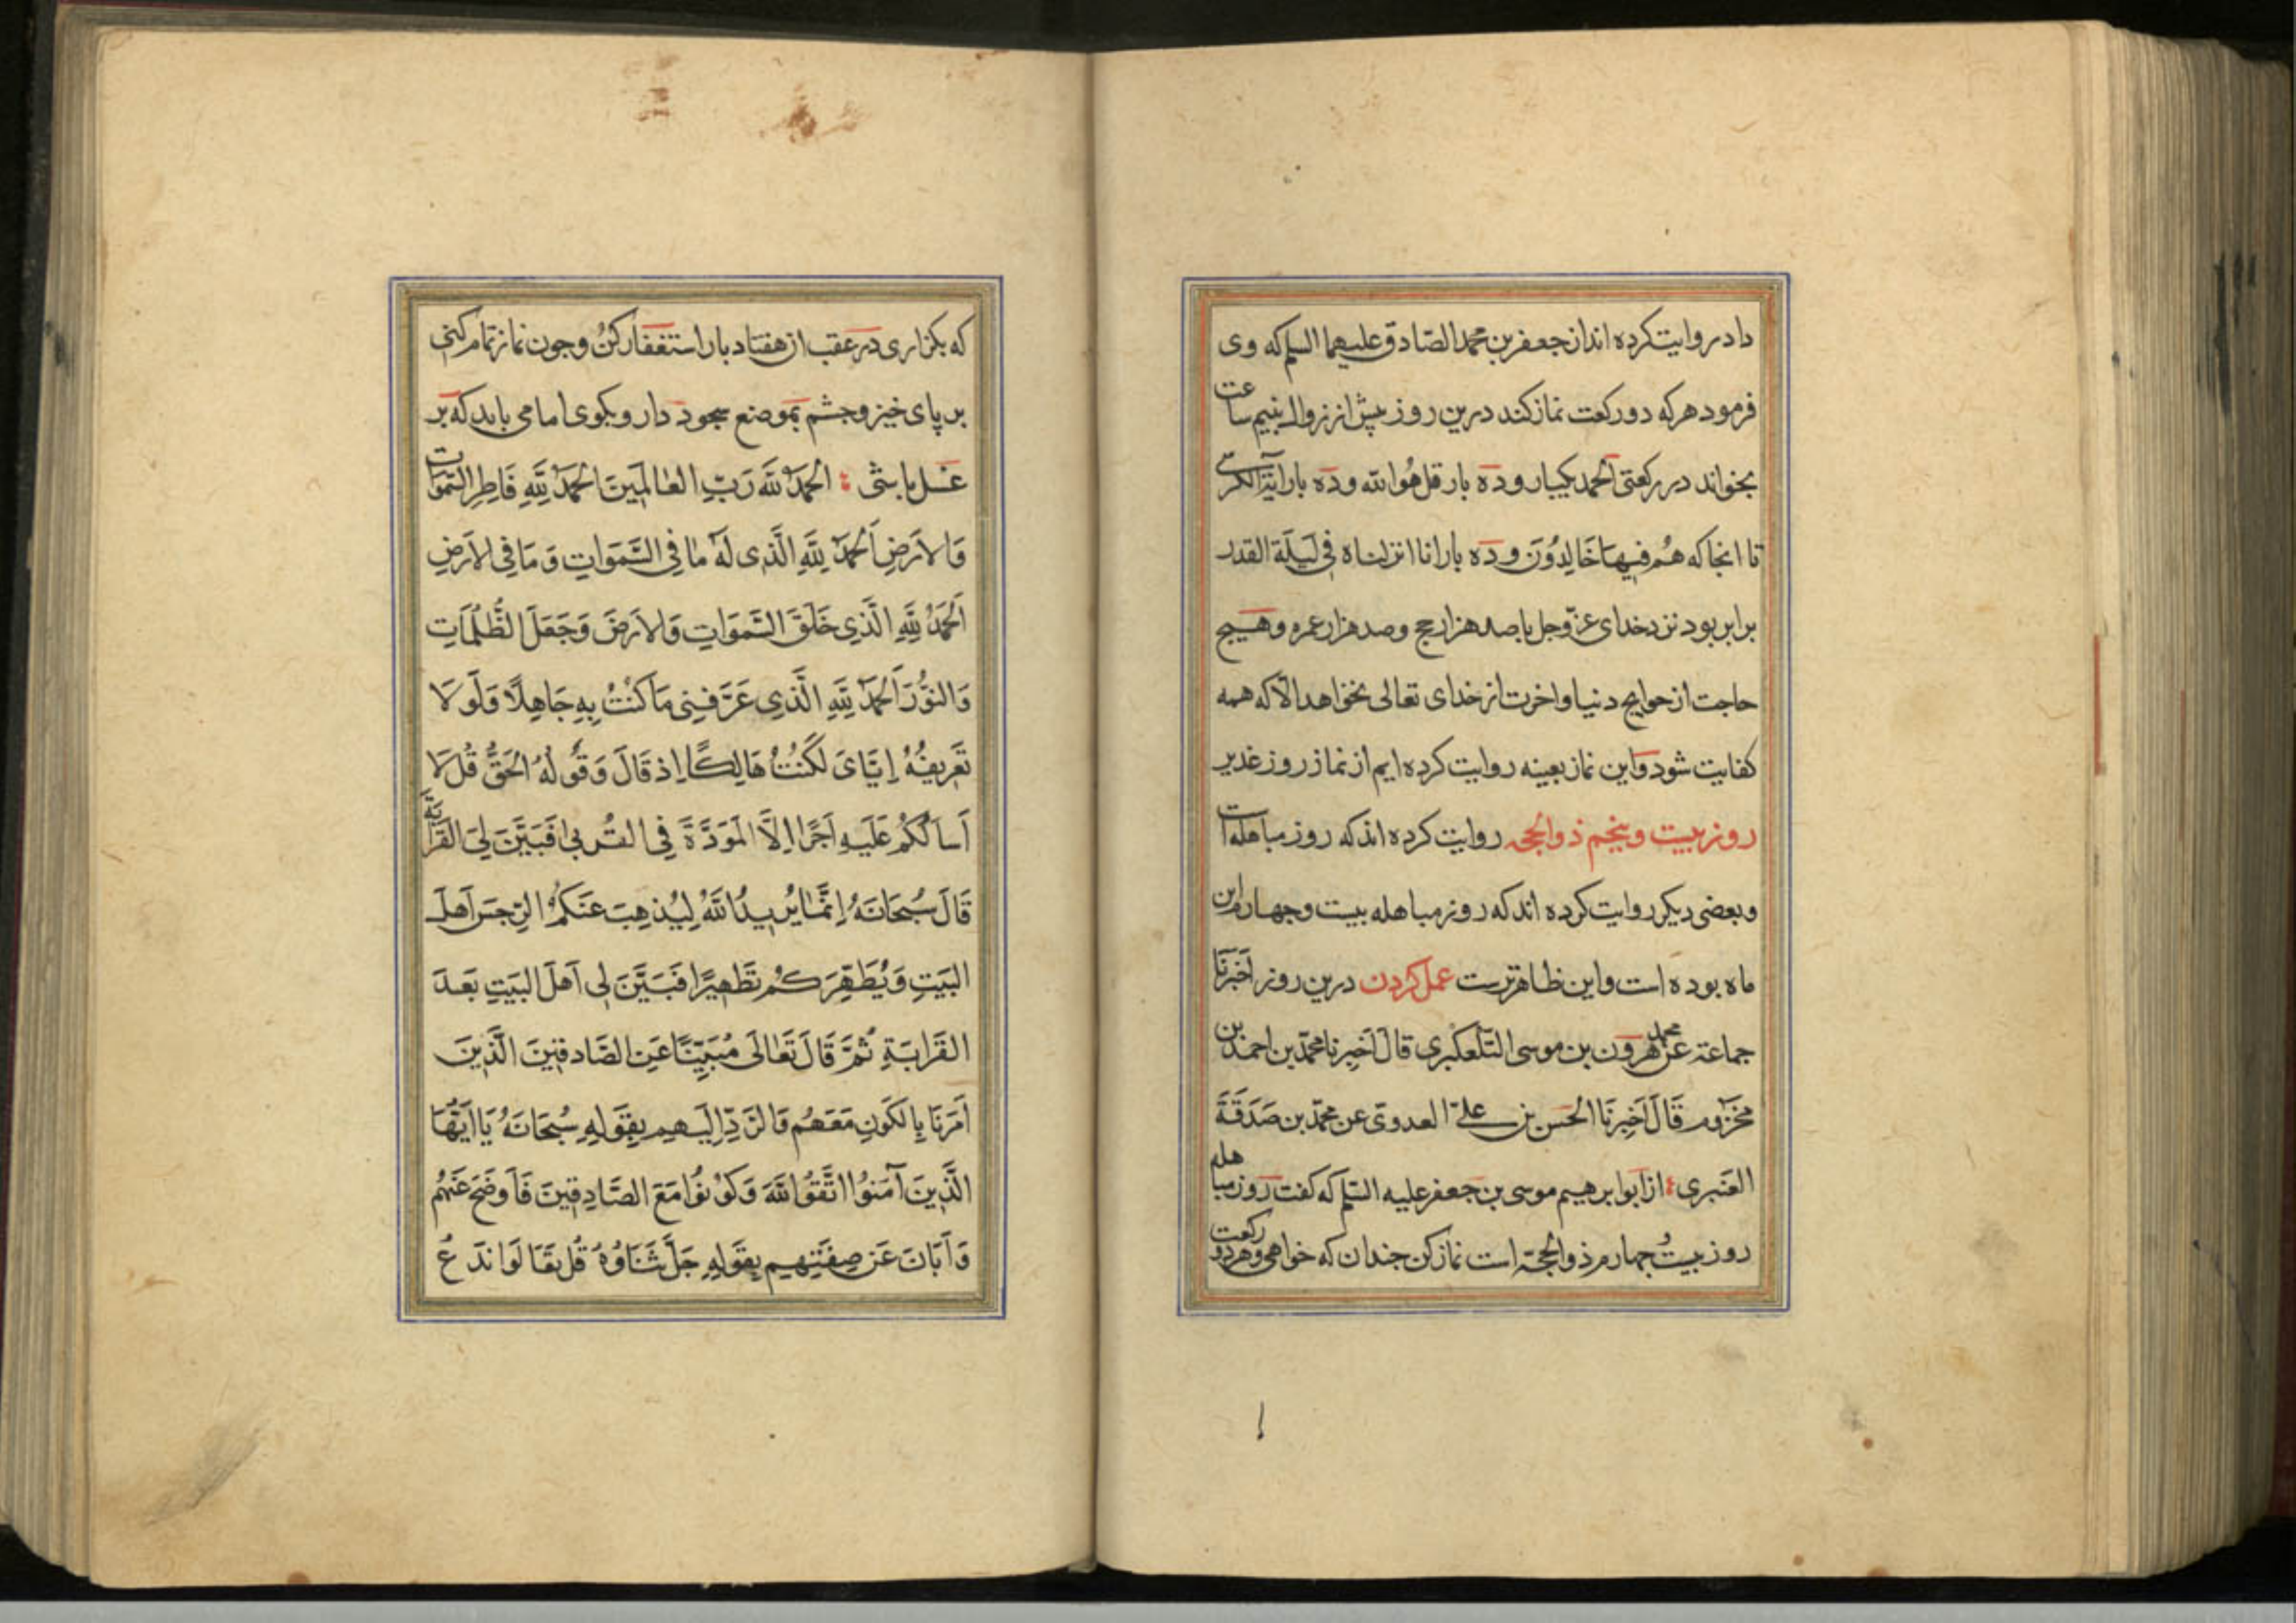 داد روایت کرده اند از جعفر بن محمد الصّادق علیهما السلم که وی
فرمود هر که دو رکعت نماز کند درین روز پیش از زوال بنیم ساعت
بخواند در رکعتی الحمد یکبار و ده بار قل هُوَ الله و ده بار آیَة الکرسی
تا انجا که هُم فیهَا خَالِدُونَ و ده بار انا انزلناه فی لَیلَة القدر
برابر بود نزد خدای عزّوجل با صد هزار حج و صد هزار عمره و هیچ
حاجت از حوایج دنیا و اخرت از خدای تعالی نخواهد الّا که همه
کفایت شود و این نماز بعینه روایت کرده ایم از نماز روز غدیر
روز بیست و پنجم ذو الحجه روایت کرده اند که روز مباهله است
و بعضی دیکر روایت کرده اند که روز مباهله بیست و چهارم این
ماه بوده است و این ظاهرترست عمل کردن درین روز اَخبَرَنَا
جماعة عن محمد هرون بن موسی التلّعکبری قال اَخبرنا محمّد بن احمد بن
مخزوم قَالَ اَخبرنَا الحَسَن بن علیّ العدوی عن محمّد بن صَدَقَةَ
العَنبری از ابو ابرهیم موسی بن جعفر علیه السّلم که کفت روز مباهله
روز بیست چهارم ذو الحجّة است نماز کن جندان که خواهی و هر دو رکعت
که بکزاری در عقب ان هفتاد بار استغفار کنُ و جون نماز تمام کنی
بر پای خیز و جشم بموضع سجود دار و بکوی اما می باید که بر
غسل باشی الحَمدُ للّهِ رَبِّ العَالَمِینَ الحَمدُ لِلّهِ فَاطِرِ السَّمَوَاتِ
وَالاَرضِ اَلحَمدُ لِلّهِ الَّذِی لَهُ مَا فِی السَّمَوَاتِ وَ مَا فِی الاَرَضِ
اَلحَمدُ لِلّهِ الَّذِی خَلَقَ السَّمَوَاتِ وَالاَرضَ وَجَعَلَ الظُّلُمَاتِ
وَالنُّورَ اَلحَمدُ لِلّهِ الَّذِی عَرَّفَنِی مَا کُنتُ بِهِ جَاهِلًا وَلَو لَا
تَعرِیفُهُ اِیَّایَ لَکُنتُ هَالِکًا اِذ قَالَ وَقَولُهُ الحَقُّ قُل لَا
اَسالُکُم عَلَیهِ اَجرًا اِلَّا المَوَدَّةَ فِی القُربی فَبَیَّنَ لِیَ القَرَابَةَ
قَالَ سُبحَانَهُ اِنَّمَا یُرِیدُ اللّهُ لِیُذهِبَ عَنکُمُ الرِّجسَ اَهلَ
البَیتِ وَیُطَهِّرَکُم تَطهِیرًا فَبَیَّنَ لِی اَهلَ البَیتِ بَعدَ
القَرَابَةِ ثُمَّ قَالَ تَعَالَی مُبَیِّنًا عَنِ الصَّادِقِینَ الَّذِینَ
اَمَرَنَا بِالکَونِ مَعَهُم وَالرَّدِّ اِلَیهِم بِقَولِهِ سُبحَانَهُ یَا اَیُّهَا
الَّذِینَ آمَنُوا اتَّقُوا اللّهَ وَکُونُوا مَعَ الصَّادِقِینَ فَاَوضَحَ عَنهُم
وَاَبَانَ عَن صِفَتِهِم بِقَولِهِ جَلَّ ثَنَاوُهُ قُل تَعَالَوا نَدعُ